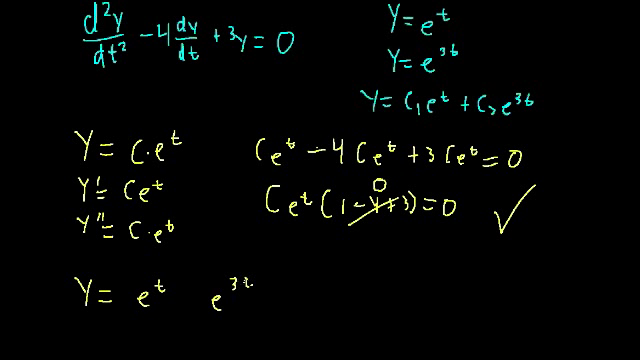 d²y/dt² - 4 dy/dt + 3y = 0
y = e^t
y = e^3t
y = c₁e^t + c₂e^3t
y = c·e^t
y' = ce^t
y'' = c·e^t
ce^t - 4ce^t + 3ce^t = 0
0
ce^t (1 - 4 + 3) = 0 ✓
y = e^t e^3t